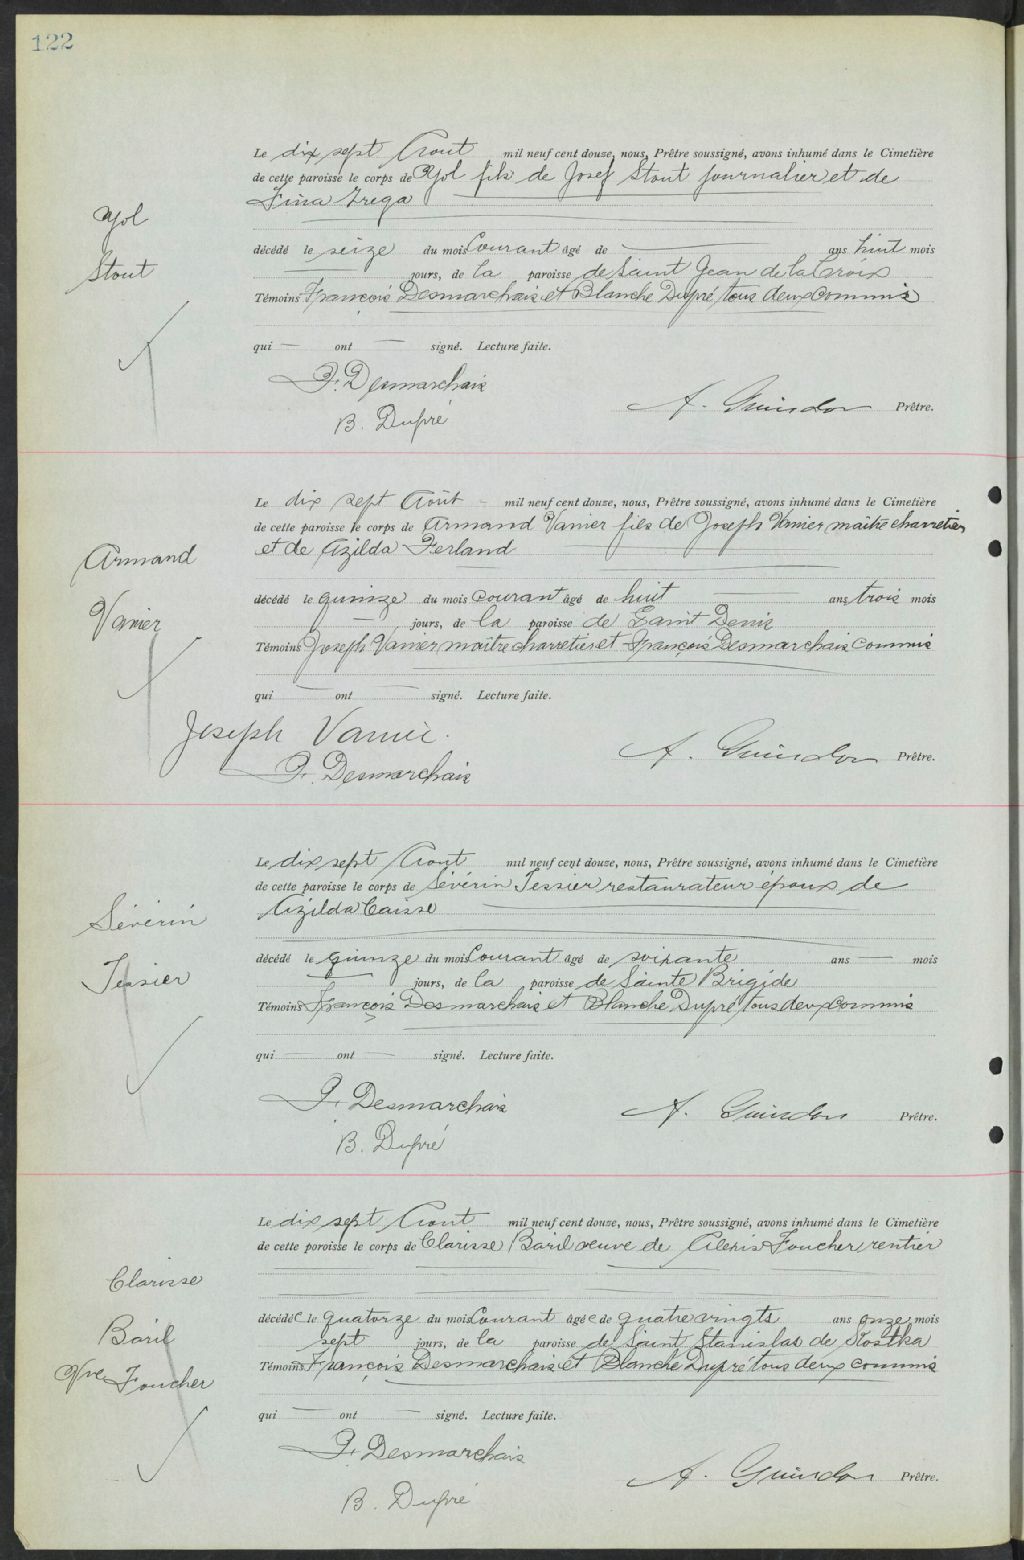 122
Le dix sept Aout mil neuf cent douze, nous, Prêtre soussigné, avons inhumé dans le Cimetière
de cette paroisse le corps de Yol fils de Josef Stout journalier et de
Fina Zrega
Yol
Stout
décédé le seize du mois Courant âgé de — ans huit mois
— jours, de la paroisse de Saint Jean de la Croix
Témoins François Desmarchais et Blanche Dupré tous deux commis
qui — ont — signé. Lecture faite.
F. Desmarchais
B. Dupré
A. Guindon Prêtre.
Le dix sept Août — mil neuf cent douze, nous, Prêtre soussigné, avons inhumé dans le Cimetière
de cette paroisse le corps de Armand Vanier fils de Joseph Vanier maître charretier
et de Azilda Ferland
Armand
Vanier
décédé le quinze du mois courant âgé de huit — ans trois mois
— jours, de la paroisse de Saint Denis
Témoins Joseph Vanier maître charretier et François Desmarchais commis
qui — ont — signé. Lecture faite.
Joseph Vanier.
F. Desmarchais
A. Guindon Prêtre.
Le dix sept Aout mil neuf cent douze, nous, Prêtre soussigné, avons inhumé dans le Cimetière
de cette paroisse le corps de Sévérin Tessier restaurateur époux de
Azilda Caisse
Sévérin
Tessier
décédé le quinze du mois Courant âgé de soixante ans — mois
— jours, de la paroisse de Sainte Brigide
Témoins François Desmarchais et Blanche Dupré tous deux commis
qui — ont — signé. Lecture faite.
F. Desmarchais
B. Dupré
A. Guindon Prêtre.
Le dix sept Aout mil neuf cent douze, nous, Prêtre soussigné, avons inhumé dans le Cimetière
de cette paroisse le corps de Clarisse Baril veuve de Alexis Foucher rentier
Clarisse
Baril
Vve Foucher
décédée le quatorze du mois Courant âgée de quatre vingts ans onze mois
sept jours, de la paroisse de Saint Stanislas de Kostka
Témoins François Desmarchais et Blanche Dupré tous deux commis
qui — ont — signé. Lecture faite.
F. Desmarchais
B. Dupré
A. Guindon Prêtre.